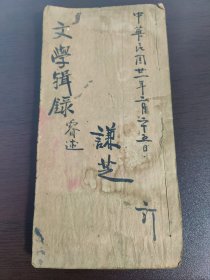 中華民國廿一年二月二十五日
謙芝 訂
文學輯錄